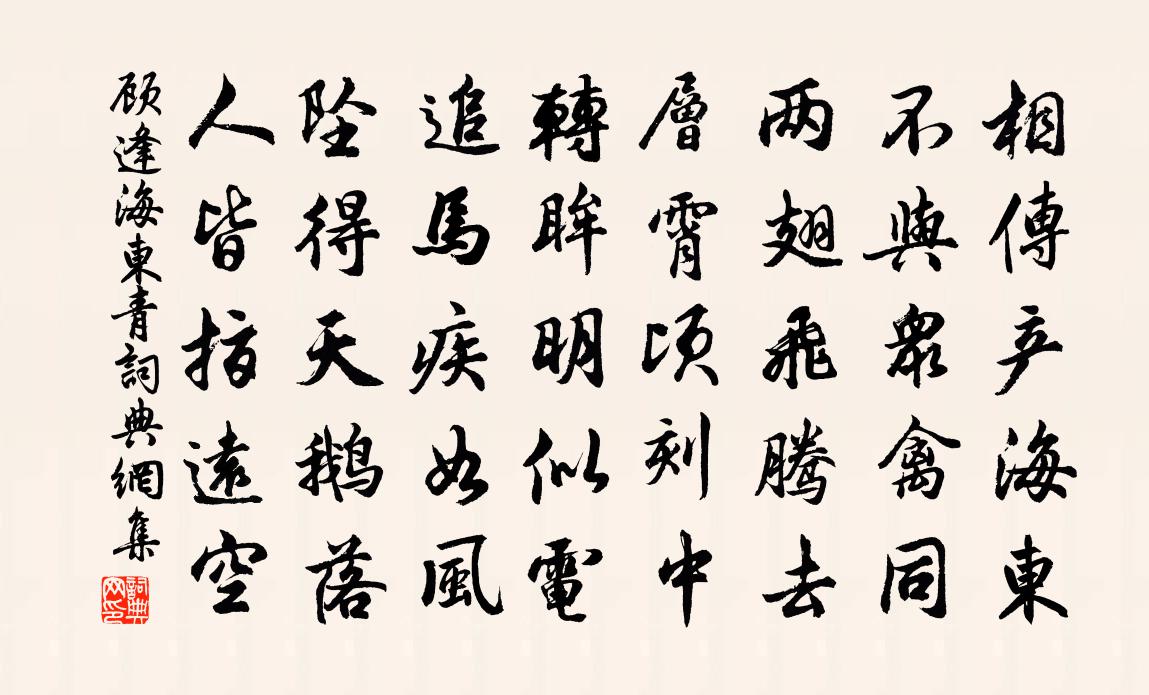 相傳产海東
不與衆禽同
两翅飛騰去
層霄頃刻中
轉眸明似電
追馬疾如風
坠得天鹅落
人皆指遠空
顾逢海東青詞典網集
詞典網印